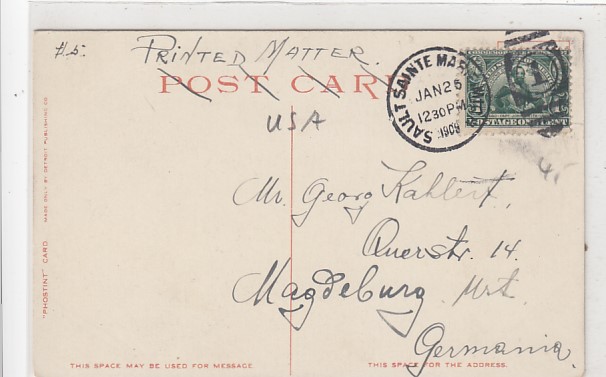 #5. Printed Matter.
POST CARD
SAULT SAINTE MARIE
JAN 25
1230 PM
1909
POSTAGE ONE CENT
USA
Mr. Georg Kahlert,
Querstr. 14.
Magdeburg
Germania.
"PHOSTINT" CARD. MADE ONLY BY DETROIT PUBLISHING CO.
THIS SPACE MAY BE USED FOR MESSAGE
THIS SPACE FOR THE ADDRESS.